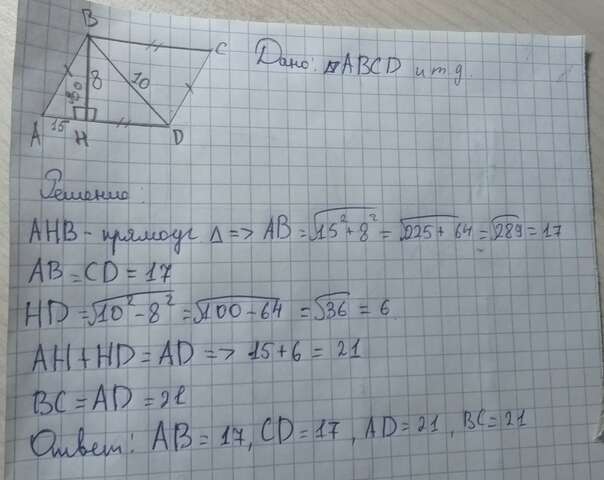 B
C
Дано: ABCD и т д.
8
10
A
15
H
D
Решение:
AHB - прямоуг Δ => AB = √15² + 8² = √225 + 64 = √289 = 17
AB = CD = 17
HD = √10² - 8² = √100 - 64 = √36 = 6
AH + HD = AD => 15 + 6 = 21
BC = AD = 21
Ответ: AB = 17, CD = 17, AD = 21, BC = 21